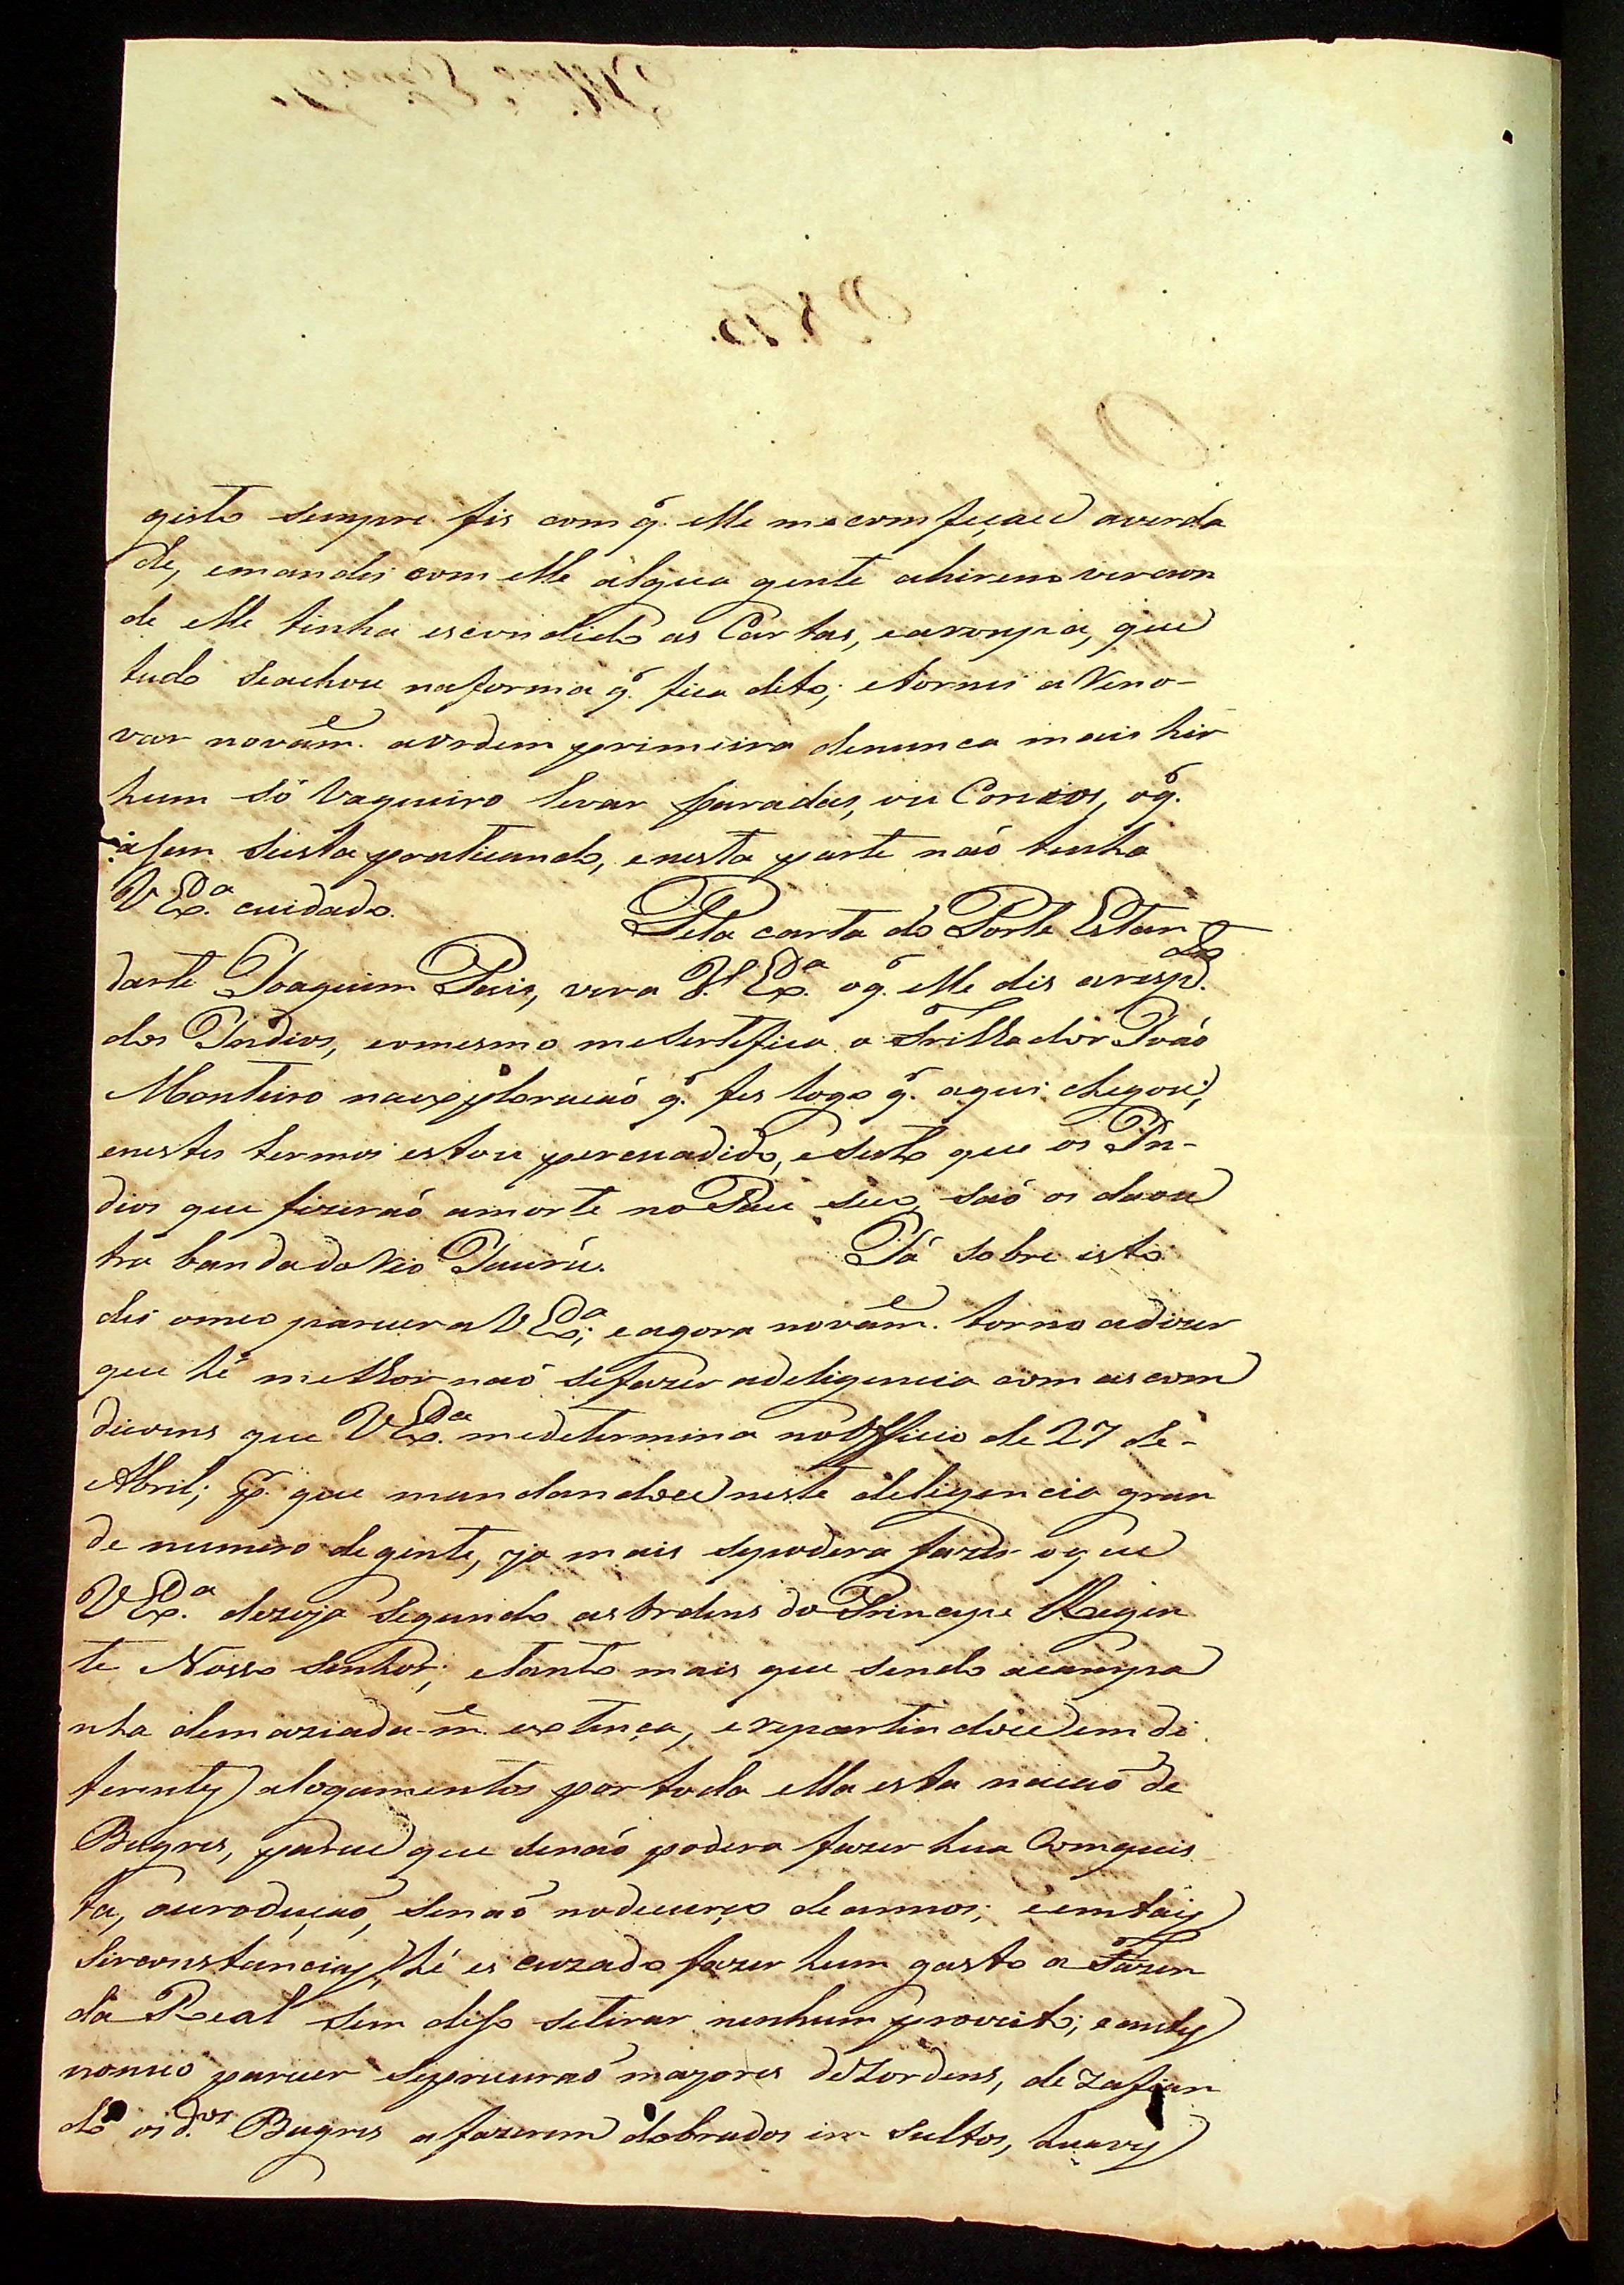 gisto sempre fis com q̃. elle me comfeçace averda
de, emandei com elle algua gente ahirem veraon
de elle tinha escondido as Cartas, earoupa, que
tudo seachou naforma q̃. fica dito; etornei a Reno-
var novam.e aordem primeira denunca mais hir
hum só Vaqueiro levar paradas, ou Correos, oq̃.
asim seesta praticando, enesta parte naó tenha
V Ex.a cuidado. Pela carta do Porte Estan
darte Joaquim Pais, vera V.Ex.a oq̃. elle dis aresp.do
dos Indios, eomesmo mesertefica o Trilhador Joaó
Monteiro naexploracaó q̃. fes logo q̃. aqui chegou;
enestes termos estou percuadido, eserto que os In-
dios que fizeraó amorte no Pau seco, saó os daou
tra bandadoRio Jacuí.
Já sobre isto
dei omeo parecer a V Ex.a; eagora novam.e torno adizer
que hé melhor naó sefazer adeligencia com as com
dicoens que V Ex.a medetermina noOfficio de 27 de-
Abril; p. que mandandoce neste deligencia gran
de numero degente, ja mais sepodera fazer oque
V Ex.a dezeja segundo asOrdens do Principe Regen
te Nosso Senhor; etanto mais que sendo acampa
nha demaziada-m.e extença, erepartindoce em di
ferentes alogamentos por toda ella esta nacaó de
Bugres, parece que senaó podera fazer hua Comquis
ta, ouroduçaó, senaó nodecurço de annos; eemtais
Sirconstancias, hé escuzado fazer hum gasto a Fazen
da Real sem diso setirar nenhum proveito; eantes
nomeo parecer seprocuraó mayores deZordens, deZafian
do os d.os Bugres afazerem dobrados in sultos,